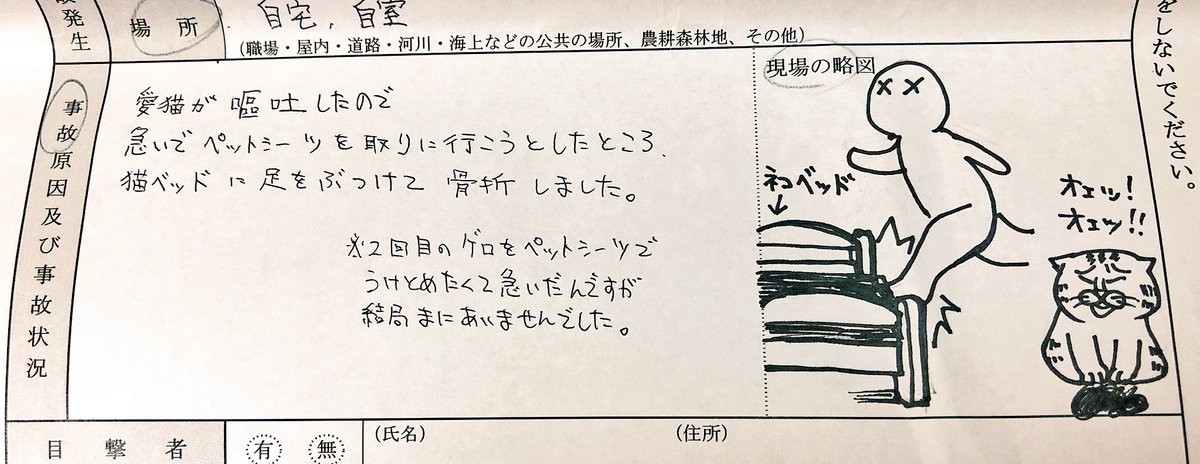 発生
場所
自宅，自室
(職場・屋内・道路・河川・海上などの公共の場所、農耕森林地、その他)
をしないでください。
事故原因及び事故状況
愛猫が嘔吐したので
急いでペットシーツを取りに行こうとしたところ、
猫ベッドに足をぶつけて骨折しました。
※2回目のゲロをペットシーツで
うけとめたくて急いだんですが
結局まにあいませんでした。
現場の略図
ネコベッド
↓
オエッ!
オエッ!!
目撃者
有 無
(氏名)
(住所)